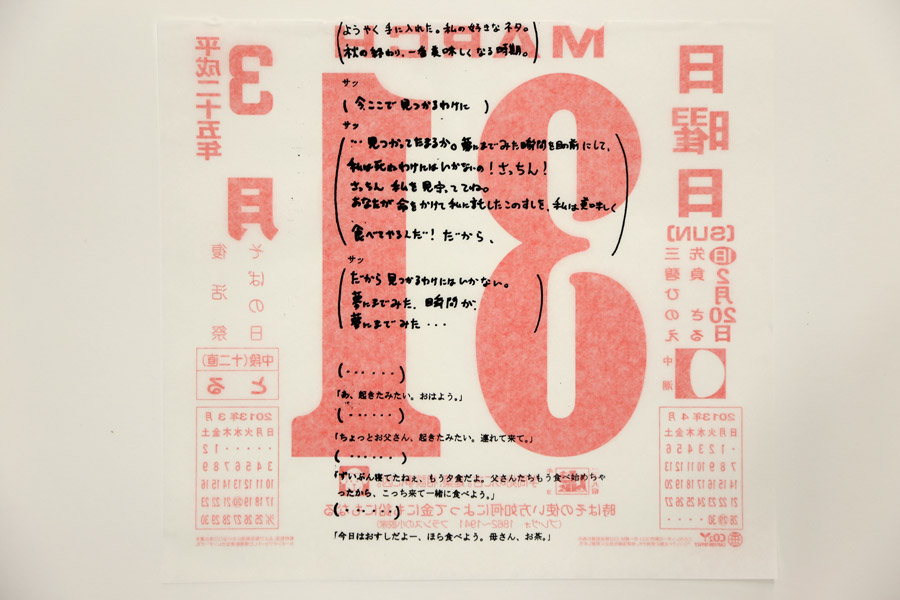 MARCH
31
平成二十五年
3月
日曜日
(SUN)
旧2月20日
先負 さる
三碧ひのえ
中潮
そばの日
復活祭
中段(十二直)
とる
2013年3月
日月火水木金土
2013年4月
日月火水木金土
時はその使い方如何によって金にも鉛にもなる
(プレヴォ 1862〜1941 フランスの小説家)
(ようやく手に入れた。私の好きなネタ。
秋の終わり、一番美味しくなる時期。)
サッ
(今ここで見つかるわけに)
サッ
(…見つかってたまるか。夢にまでみた瞬間を目の前にして、
私は死ぬわけにはいかないの!さっちん!
さっちん 私を見守っててね。
あなたが命をかけて私に託したこのすしを、私は美味しく
食べてやるんだ!だから、)
サッ
(だから見つかるわけにはいかない。
夢にまでみた、瞬間が、
夢にまでみた・・・)
(・・・・・・)
「あ、起きたみたい。おはよう。」
(・・・・・・)
「ちょっとお父さん、起きたみたい。連れて来て。」
(・・・・・・)
「ずいぶん寝てたねぇ、もう夕食だよ。父さんたちもう食べ始めちゃ
ったから、こっち来て一緒に食べよう。」
(・・・・・・)
「今日はおすしだよー、ほら食べよう。母さん、お茶。」